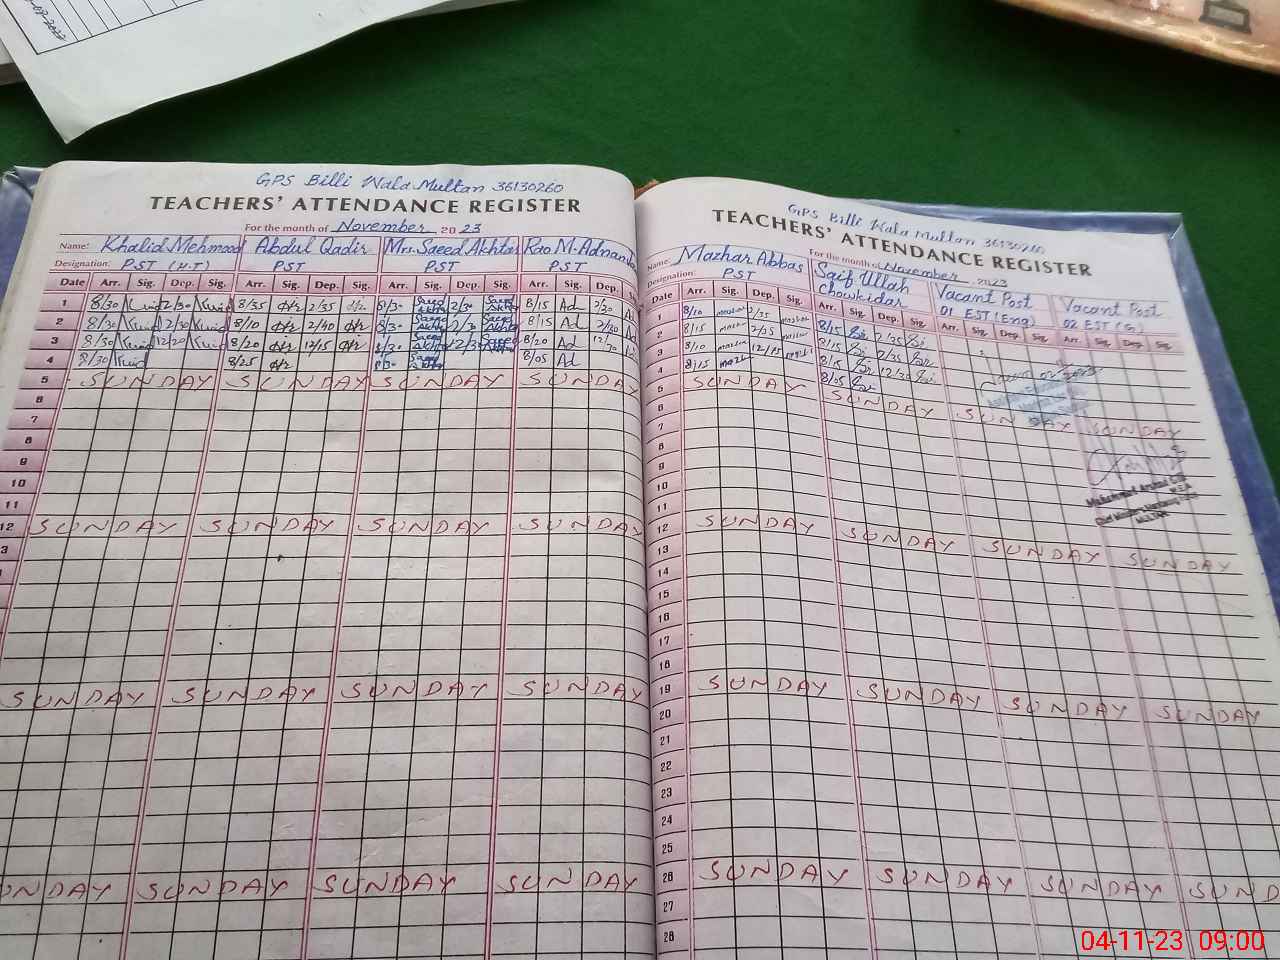 GPS Billi Wala Multan 36130260
TEACHERS' ATTENDANCE REGISTER
For the month of November 2023
Name: Khalid Mehmood Abdul Qadir Mrs. Saeed Akhtar Rao M. Adnan
Designation: PST (H.T) PST PST PST
Date Arr. Sig. Dep. Sig. Arr. Sig. Dep. Sig. Arr. Sig. Dep. Sig. Arr. Sig. Dep.
1 8/30 2/30 8/35 2/35 8/30 Saeed Akhtar 2/30 Saeed Akhtar 8/15 Ad 2/30
2 8/30 2/30 8/10 2/40 8/30 Saeed Akhtar 2/30 Saeed Akhtar 8/15 Ad 2/30
3 8/30 12/20 8/20 12/15 8/30 Saeed Akhtar 12/30 Saeed 8/20 Ad 12/30
4 8/30 8/25 8/30 Saeed Akhtar 8/05 Ad
5 SUNDAY SUNDAY SUNDAY SUNDAY
6
7
8
9
10
11
12 SUNDAY SUNDAY SUNDAY SUNDAY
3
SUNDAY SUNDAY SUNDAY SUNDAY
UNDAY SUNDAY SUNDAY SUNDAY
GPS Billi Wala Multan 36130260
TEACHERS' ATTENDANCE REGISTER
For the month of November 2023
Name: Mazhar Abbas Saif Ullah Chowkidar Vacant Post 01 EST (Eng) Vacant Post 02 EST (G)
Designation: PST
Date Arr. Sig. Dep. Sig. Arr. Sig. Dep. Sig. Arr. Sig. Dep. Sig. Arr. Sig. Dep. Sig.
1 8/10 2/35 8/15 2/35
2 8/15 2/35 8/15 2/35
3 8/10 12/15 8/15 12/30
4 8/15 8/05
5 SUNDAY SUNDAY SUNDAY SUNDAY
6
7
8
9
10
11
12 SUNDAY SUNDAY SUNDAY SUNDAY
13
14
15
16
17
18
19 SUNDAY SUNDAY SUNDAY SUNDAY
20
21
22
23
24
25
26 SUNDAY SUNDAY SUNDAY SUND
27
28
04-11-23 09:00